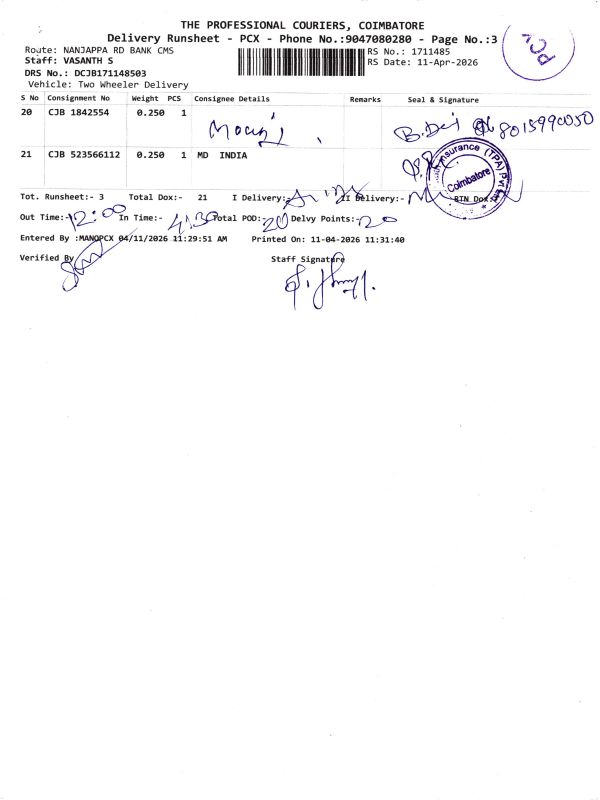 THE PROFESSIONAL COURIERS, COIMBATORE
Delivery Runsheet - PCX - Phone No.:9047080280 - Page No.:3
PCX
Route: NANJAPPA RD BANK CMS
RS No.: 1711485
Staff: VASANTH S
RS Date: 11-Apr-2026
DRS No.: DCJB171148503
Vehicle: Two Wheeler Delivery
S No Consignment No Weight PCS Consignee Details Remarks Seal & Signature
20 CJB 1842554 0.250 1
8015990050
21 CJB 523566112 0.250 1 MD INDIA
Insurance (TPA) Pvt
Coimbatore
Tot. Runsheet:- 3 Total Dox:- 21 I Delivery:- II Delivery:- RTN Dox:
Out Time:- 12:00 In Time:- 4:30 Total POD:- 20 Delvy Points:- 20
Entered By :MANOPCX 04/11/2026 11:29:51 AM Printed On: 11-04-2026 11:31:40
Verified By
Staff Signature